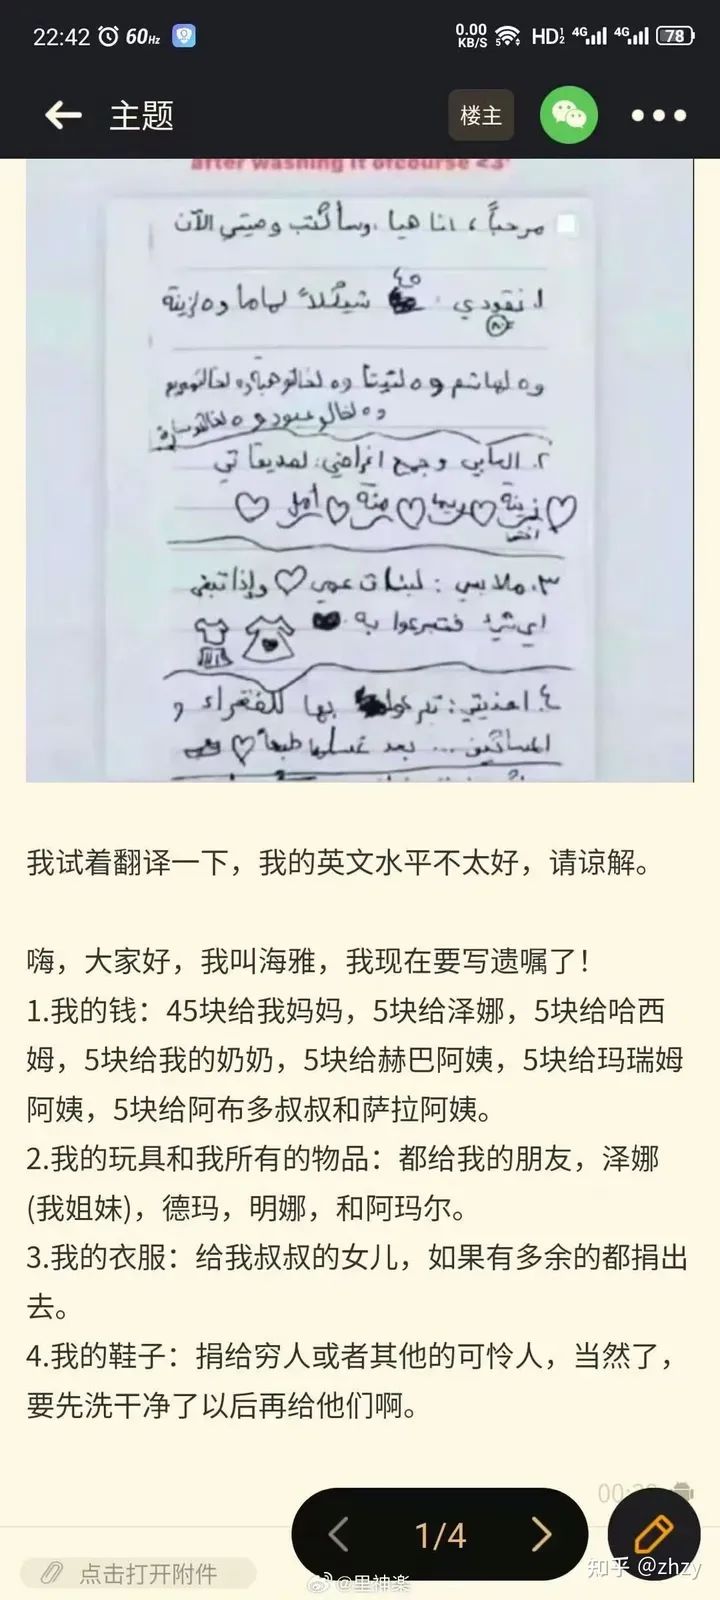 22:42 60Hz 0.00 KB/S 5 HD 1 2 4G 4G 78
主题 楼主
after washing it ofcourse <3"
مرحباً، انا هيا، وسأكتب وصيتي الآن
٤٥
١. نقودي: شيكلاً لماما و ٥ لزينة
و ٥ لهاشم و ٥ لتيتا و ٥ لخالتو هبة و ٥ لخالتو مريم
و ٥ لخالو عبود و ٥ لخالتو سارة
٢. العابي وجمع اغراضي: لصديقاتي
زينة ريما منة أمل
اختي
٣. ملابسي: لبنات عمي وإذا تبقى
اي شيء فتبرعوا به
٤. احذيتي: تبرعوا بها للفقراء و
المساكين... بعد غسلها طبعاً
我试着翻译一下，我的英文水平不太好，请谅解。
嗨，大家好，我叫海雅，我现在要写遗嘱了！
1.我的钱：45块给我妈妈，5块给泽娜，5块给哈西
姆，5块给我的奶奶，5块给赫巴阿姨，5块给玛瑞姆
阿姨，5块给阿布多叔叔和萨拉阿姨。
2.我的玩具和我所有的物品：都给我的朋友，泽娜
(我姐妹)，德玛，明娜，和阿玛尔。
3.我的衣服：给我叔叔的女儿，如果有多余的都捐出
去。
4.我的鞋子：捐给穷人或者其他的可怜人，当然了，
要先洗干净了以后再给他们啊。
1/4
点击打开附件
知乎 @zhzy
@里神楽